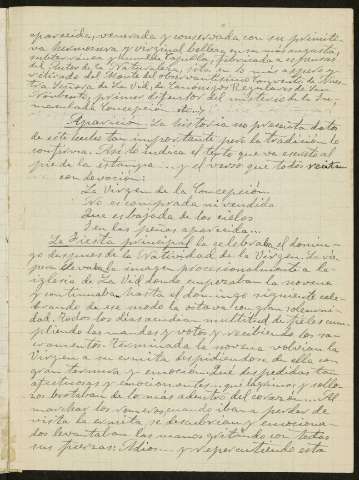 aparecida, venerada y conservada con su primiti-
va hermosura y virginal belleza en su más augusta,
subterránea y humilde Capilla, fabricada a expensas
del Autor de la Naturaleza, sola en lo más áspero y
retirado del Monte del observantísimo Convento de Nues-
tra Señora de La Vid, de Canónigos Regulares de San
Norberto, primer defensor del misterio de la In-
maculada Concepción.
Aparición. La historia no presenta datos
de este título tan importante, pero la tradición lo
confirma. Así lo indica el texto que va escrito al
pie de la estampa ... y el verso que todos recitan
con devoción:
La Virgen de la Concepción
No es comprada ni vendida
Que es bajada de los cielos
Y en las peñas aparecida...
La Fiesta principal la celebraba el domin-
go después de la Natividad de la Virgen. La vís-
pera llevaba la imagen procesionalmente a la
iglesia de La Vid donde empezaban la novena
y continuaba hasta el domingo siguiente cele-
brando de ese modo la octava con gran solemni-
dad. Todos los días acudía multitud de fieles cum-
pliendo las mandas y votos y recibiendo los sa-
cramentos. Terminada la novena volvían la
Virgen a su ermita despidiéndose de ella con
gran ternura y emoción. Qué despedidas tan
afectuosas y emocionantes... que lágrimas y sollo-
zos brotaban de lo más adentro del corazón... Al
marchar los romeros, cuando iban a perder de
vista la ermita se descubrían y emociona-
dos levantaban las manos gritando con todas
sus fuerzas: Adios... y repercutiendo esta